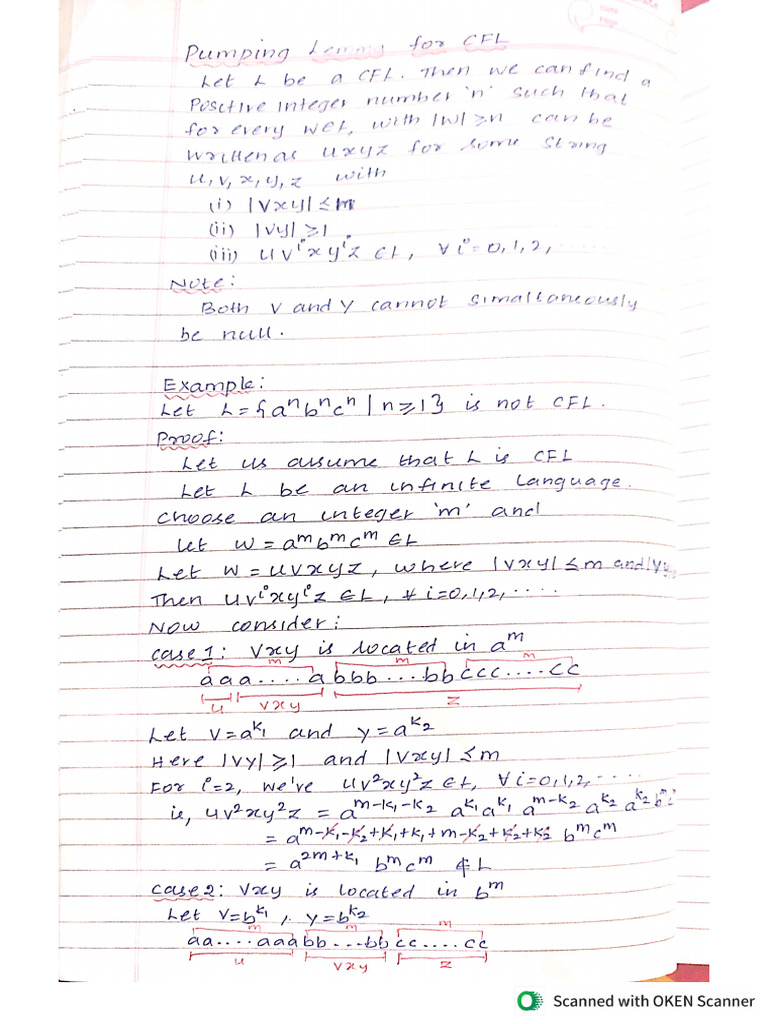 Date
Page
Pumping Lemma for CFL
Let L be a CFL. Then we can find a
Positive integer number 'n' such that
for every w∈L, with |w| ≥n can be
written as uxyz for some string
u, v, x, y, z with
(i) |vxy| ≤ m
(ii) |vy| ≥1
(iii) uvⁱxyⁱz ∈L, ∀ i=0,1,2, ......
Note:
Both v and y cannot simaltaneously
be null.
Example:
Let L={aⁿbⁿcⁿ | n≥1} is not CFL.
Proof:
Let us assume that L is CFL
Let L be an infinite language.
choose an integer 'm' and
let w = aᵐbᵐcᵐ ∈L
Let w = uvxyz, where |vxy| ≤m and |vy
Then uvⁱxyⁱz ∈L, ∀ i=0,1,2, ....
Now consider:
case 1: vxy is located in aᵐ
m m m
aaa....abbb...bbccc....cc
u vxy z
Let v=aᵏ¹ and y=aᵏ²
Here |vy|≥1 and |vxy| ≤m
For i=2, we've uv²xy²z ∈L, ∀ i=0,1,2, .....
ie, uv²xy²z = a^(m-k₁-k₂) a^k₁ a^k₁ a^(m-k₂) a^k₂ a^k₂ b^m
= a^(m-k₁-k₂+k₁+k₁+m-k₂+k₂+k₂) bᵐcᵐ
= a^(2m+k₁) bᵐcᵐ ∉ L
case 2: vxy is located in bᵐ
Let v=bᵏ¹, y=bᵏ²
m m m
aa....aaabb...bbcc....cc
u vxy z
Scanned with OKEN Scanner